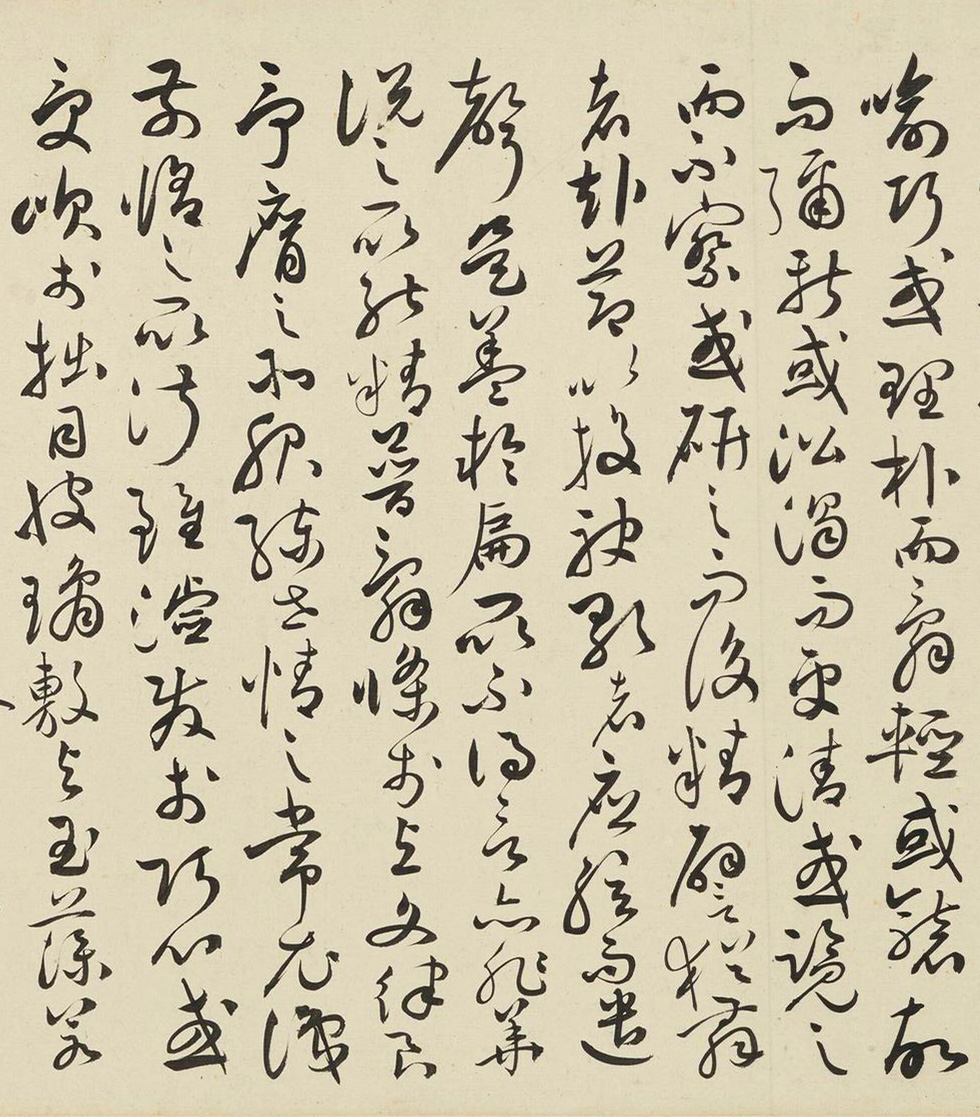 喻巧或理朴而辭輕或襲故
而彌新或沿濁而更清或覽之
而必察或研之而後精譬猶舞
者赴節以投袂歌者應絃而遣
聲是蓋輪扁所不得言亦非華
說之所能精普辭條於與文律良
予膺之所服練世情之常尤識
前脩之所淑雖濬發於巧心或
受吹於拙目彼瓊敷與玉藻若